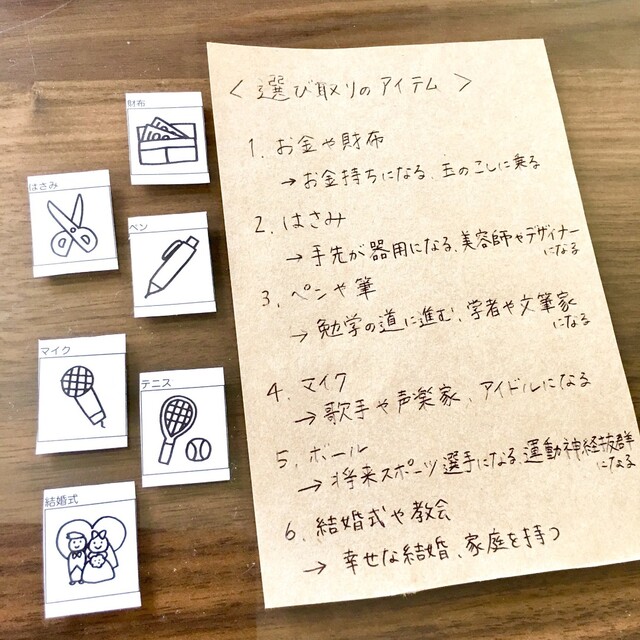 財布
はさみ
ペン
マイク
テニス
結婚式
<選び取りのアイテム>
1. お金や財布
→お金持ちになる、玉のこしに乗る
2. はさみ
→手先が器用になる、美容師やデザイナー
になる
3. ペンや筆
→勉学の道に進む、学者や文筆家
になる
4. マイク
→歌手や声楽家、アイドルになる
5. ボール
→将来スポーツ選手になる、運動神経抜群
になる
6. 結婚式や教会
→幸せな結婚、家庭を持つ